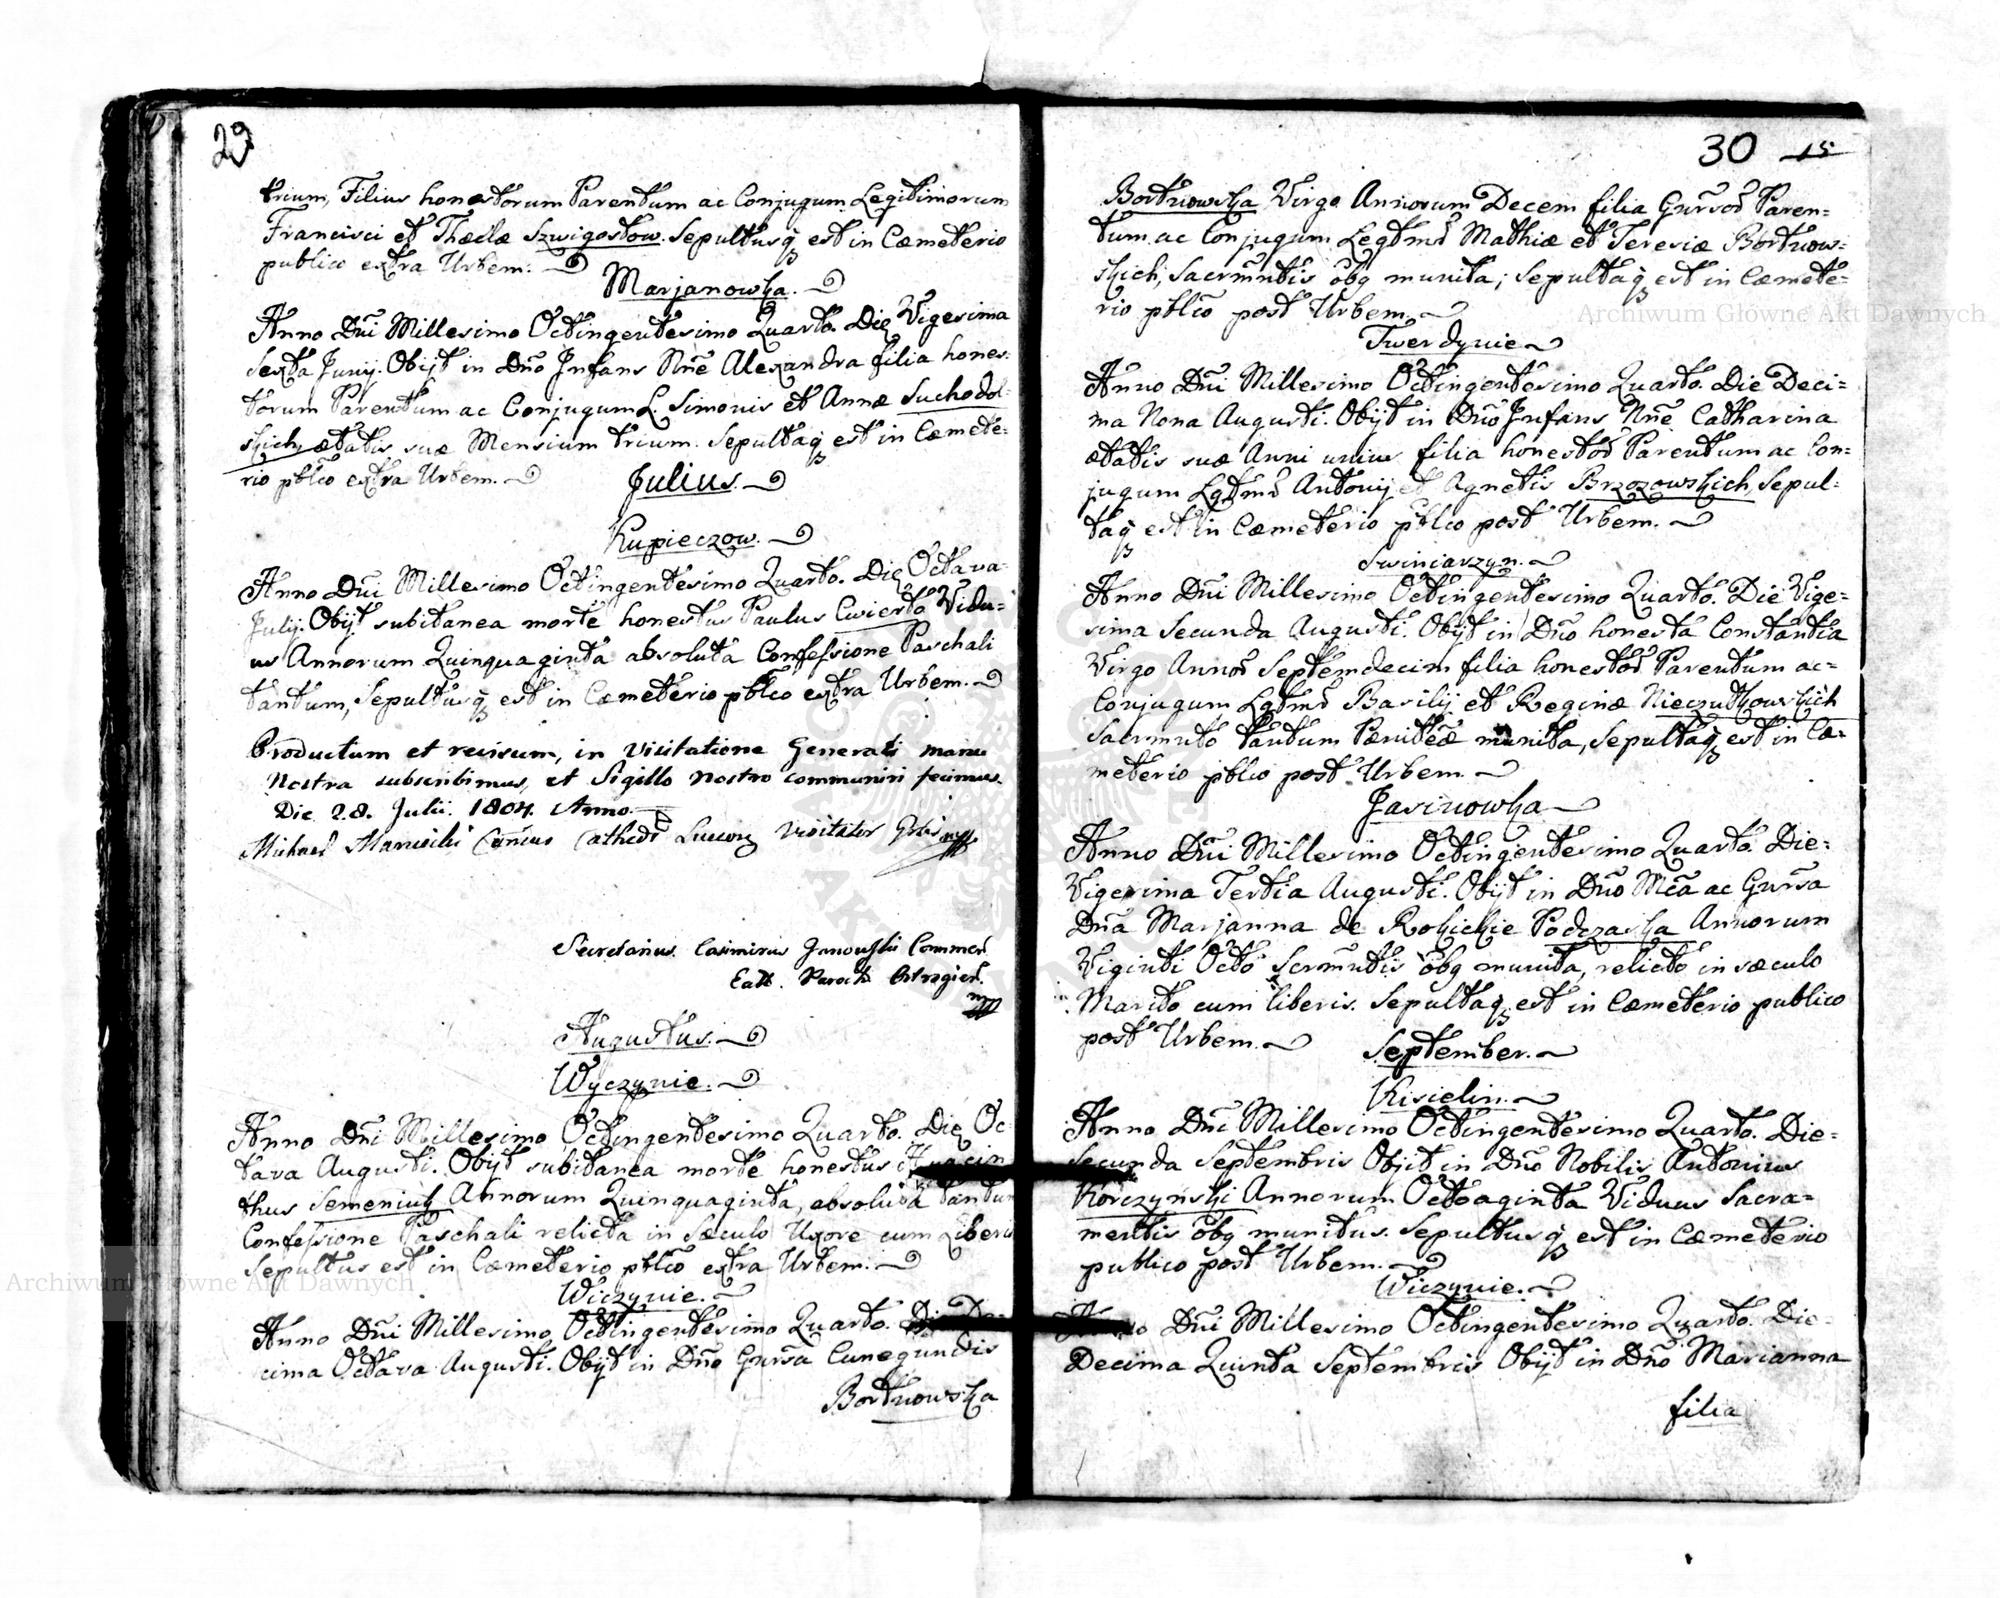 29
trium, Filius honestorum Parentum ac Conjugum Legitimorum
Francisci et Theclæ Szwigostow. Sepultusq̃ est in Cæmeterio
publico extra Urbem.
Marjanowka.
Anno Dñi Millesimo Octingentesimo Quarto. Die Vigesima
Sexta Junij. Obijt in Dño Infans Nñe Alexandra filia hones:
torum Parentum ac Conjugum L. Simonis et Annæ Suchodol-
skich, ætatis suæ Mensium trium. Sepultaq̃ est in Cæmete-
rio pblco extra Urbem.
Julius.
Kupieczow.
Anno Dñi Millesimo Octingentesimo Quarto. Die Octava
Julij. Obijt subitanea morte honestus Paulus Cwierto Vidu-
us Annorum Quinquaginta absoluta Confessione Paschali
tantum, Sepultusq̃ est in Cæmeterio pblco extra Urbem.
Productum et revisum, in Visitatione Generali manu
Nostra subscribimus, et Sigillo Nostro communiri fecimus.
Die 28. Julii. 1804. Anno.
Michael Cancus Cathedr Luceor Visitator
Secretarius Casimirus Janowski Commen
Eccl. Paroch
Augustus.
Wyczynie.
Anno Dñi Millesimo Octingentesimo Quarto. Die Oc-
tava Augusti. Obijt subitanea morte honestus Hyacin
thus Semeniuk Annorum Quinquaginta, absoluta tantum
Confessione Paschali relicta in Sæculo Uxore cum Liberis
Sepultus est in Cæmeterio pblco extra Urbem.
Wiczynie.
Anno Dñi Millesimo Octingentesimo Quarto. Die De-
cima Octava Augusti. Obijt in Dño Gnrsa Cunegundis
Bortnowska
30 15
Bortnowska Virgo Annorum Decem filia Gnrsor Paren=
tum ac Conjugum Legtmr Mathiæ et Teresiæ Bortnow=
skich, Sacrmntis õbq munita; Sepultaq̃ est in Cæmete=
rio pblco post Urbem.
Twerdynie
Anno Dñi Millesimo Octingentesimo Quarto. Die Deci=
ma Nona Augusti. Obijt in Dño Infans Nñe Catharina
ætatis suæ Anni unius filia honestor Parentum ac Con=
jugum Lgtmr Antonij et Agnetis Brzozowskich, Sepul=
taq̃ est in Cæmeterio pblco post Urbem.
Swiniarzyn.
Anno Dñi Millesimo Octingentesimo Quarto. Die Vige=
sima Secunda Augusti. Obijt in Dño honesta Constantia
Virgo Annor Septemdecim filia honestor Parentum ac=
Conjugum Lgtmr Basilij et Reginæ Nieczutkowskich
Sacrmnto tantum Pænitẽæ munita, Sepultaq̃ est in Cæ=
meterio pblco post Urbem.
Jasinowka
Anno Dñi Millesimo Octingentesimo Quarto. Die=
Vigesima Tertia Augusti. Obijt in Dño Mca ac Gnrsa
Dña Marjanna de Rokickie Podczaska Annorum
Viginti Octo Scrmntis õbq munita, relicto in sæculo
Marito cum liberis. Sepultaq̃ est in Cæmeterio publico
post Urbem.
September.
Kisielin.
Anno Dñi Millesimo Octingentesimo Quarto. Die=
Secunda Septembris Objit in Dño Nobilis Antonius
Korczynski Annorum Octoaginta Viduus Sacra=
mentis õbq munitus. Sepultusq̃ est in Cæmeterio
publico post Urbem.
Wiczynie.
Anno Dñi Millesimo Octingentesimo Quarto. Die=
Decima Quinta Septembris Obijt in Dño Marianna
filia
Archiwum Główne Akt Dawnych
Archiwum Główne Akt Dawnych